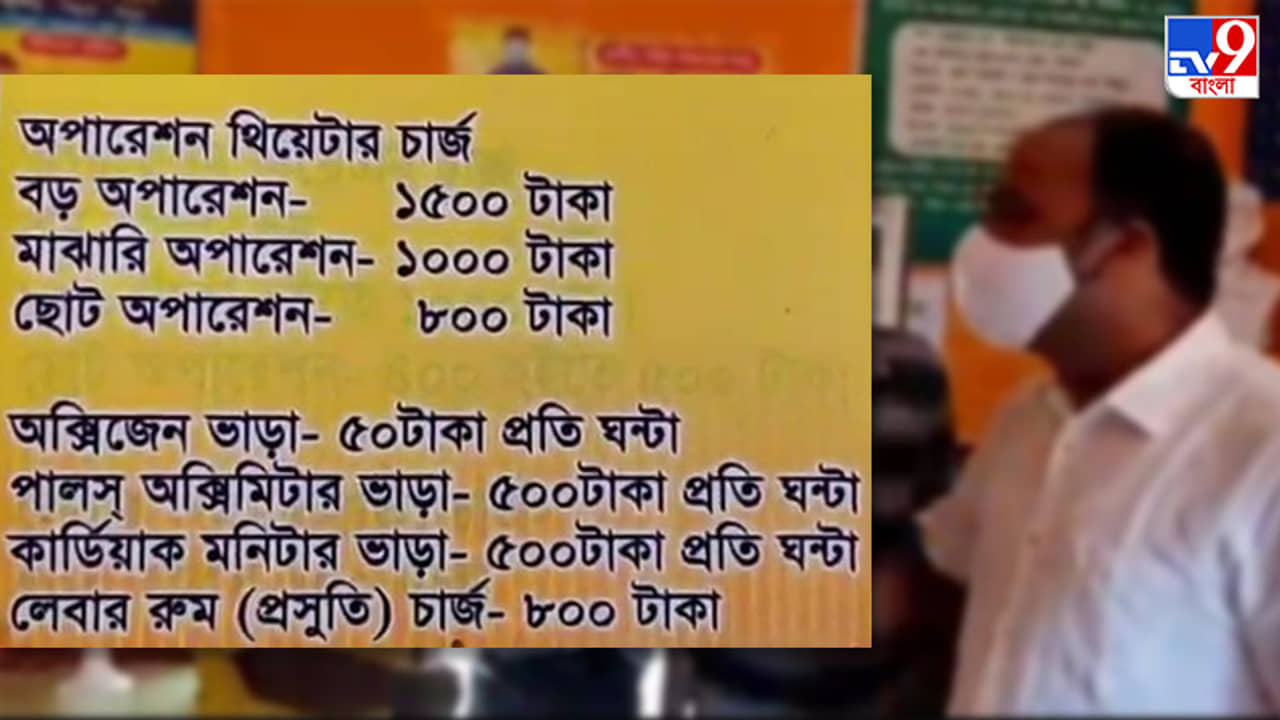 TV9
বাংলা
অপারেশন থিয়েটার চার্জ
বড় অপারেশন- ১৫০০ টাকা
মাঝারি অপারেশন- ১০০০ টাকা
ছোট অপারেশন- ৮০০ টাকা
অক্সিজেন ভাড়া- ৫০টাকা প্রতি ঘন্টা
পালস্ অক্সিমিটার ভাড়া- ৫০০টাকা প্রতি ঘন্টা
কার্ডিয়াক মনিটার ভাড়া- ৫০০টাকা প্রতি ঘন্টা
লেবার রুম (প্রসুতি) চার্জ- ৮০০ টাকা